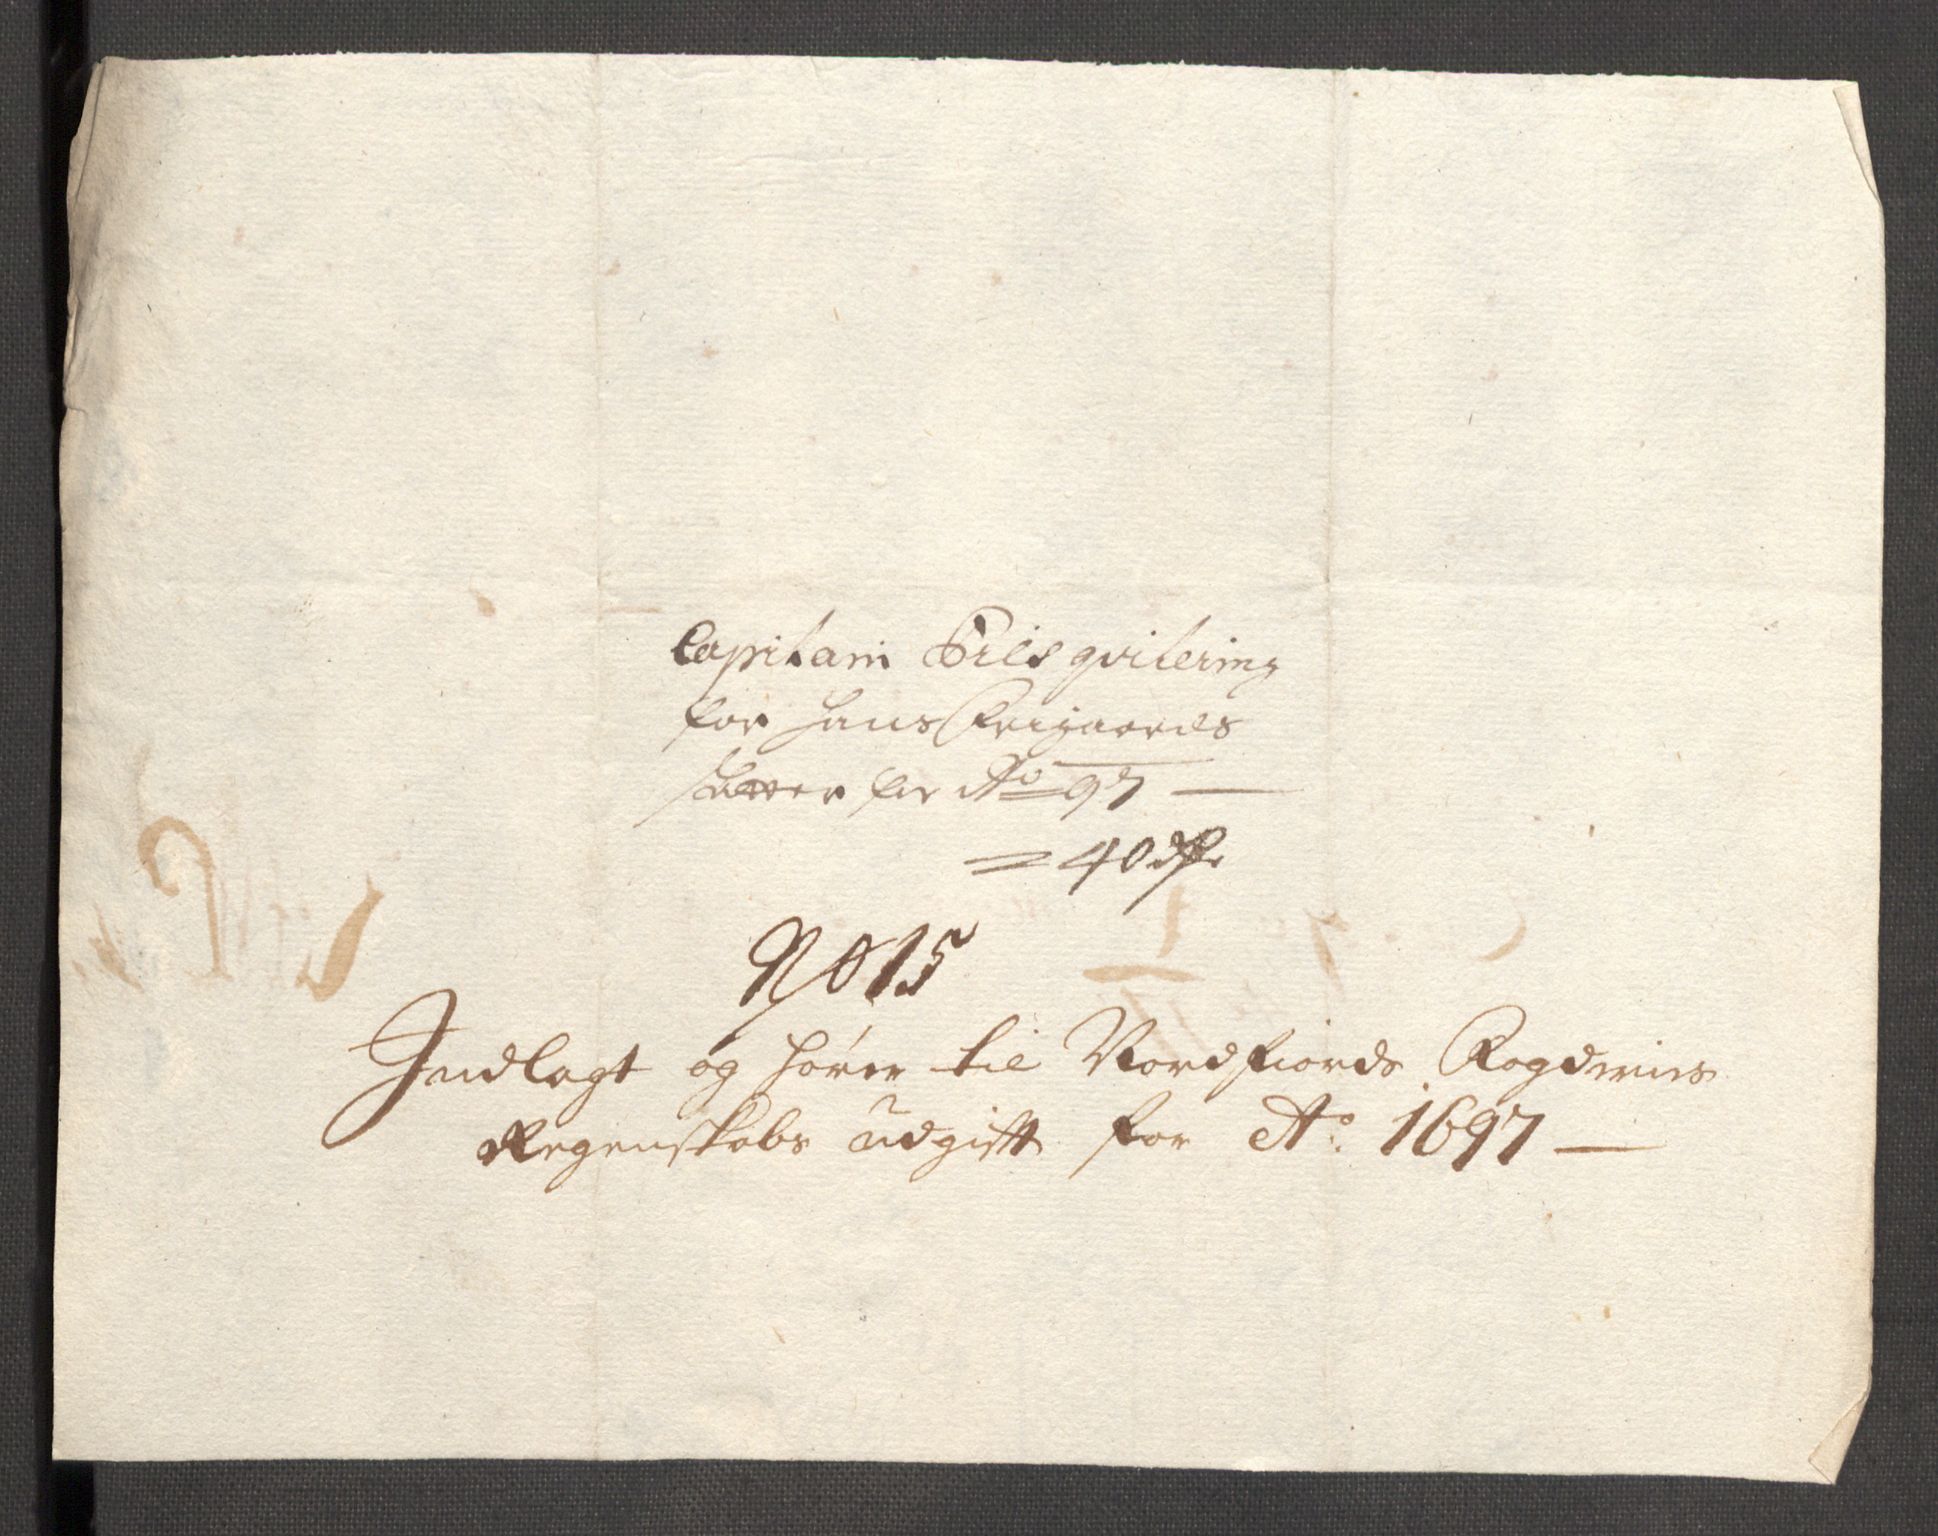 Capitani Bils qvitering
for Hans Frigaardes
skatter for Ao 97 —
= 40 dlr
No 15
Indlagt og hører til Nordfiords Fogderies
Regenskabs udgifft for Ao: 1697 —